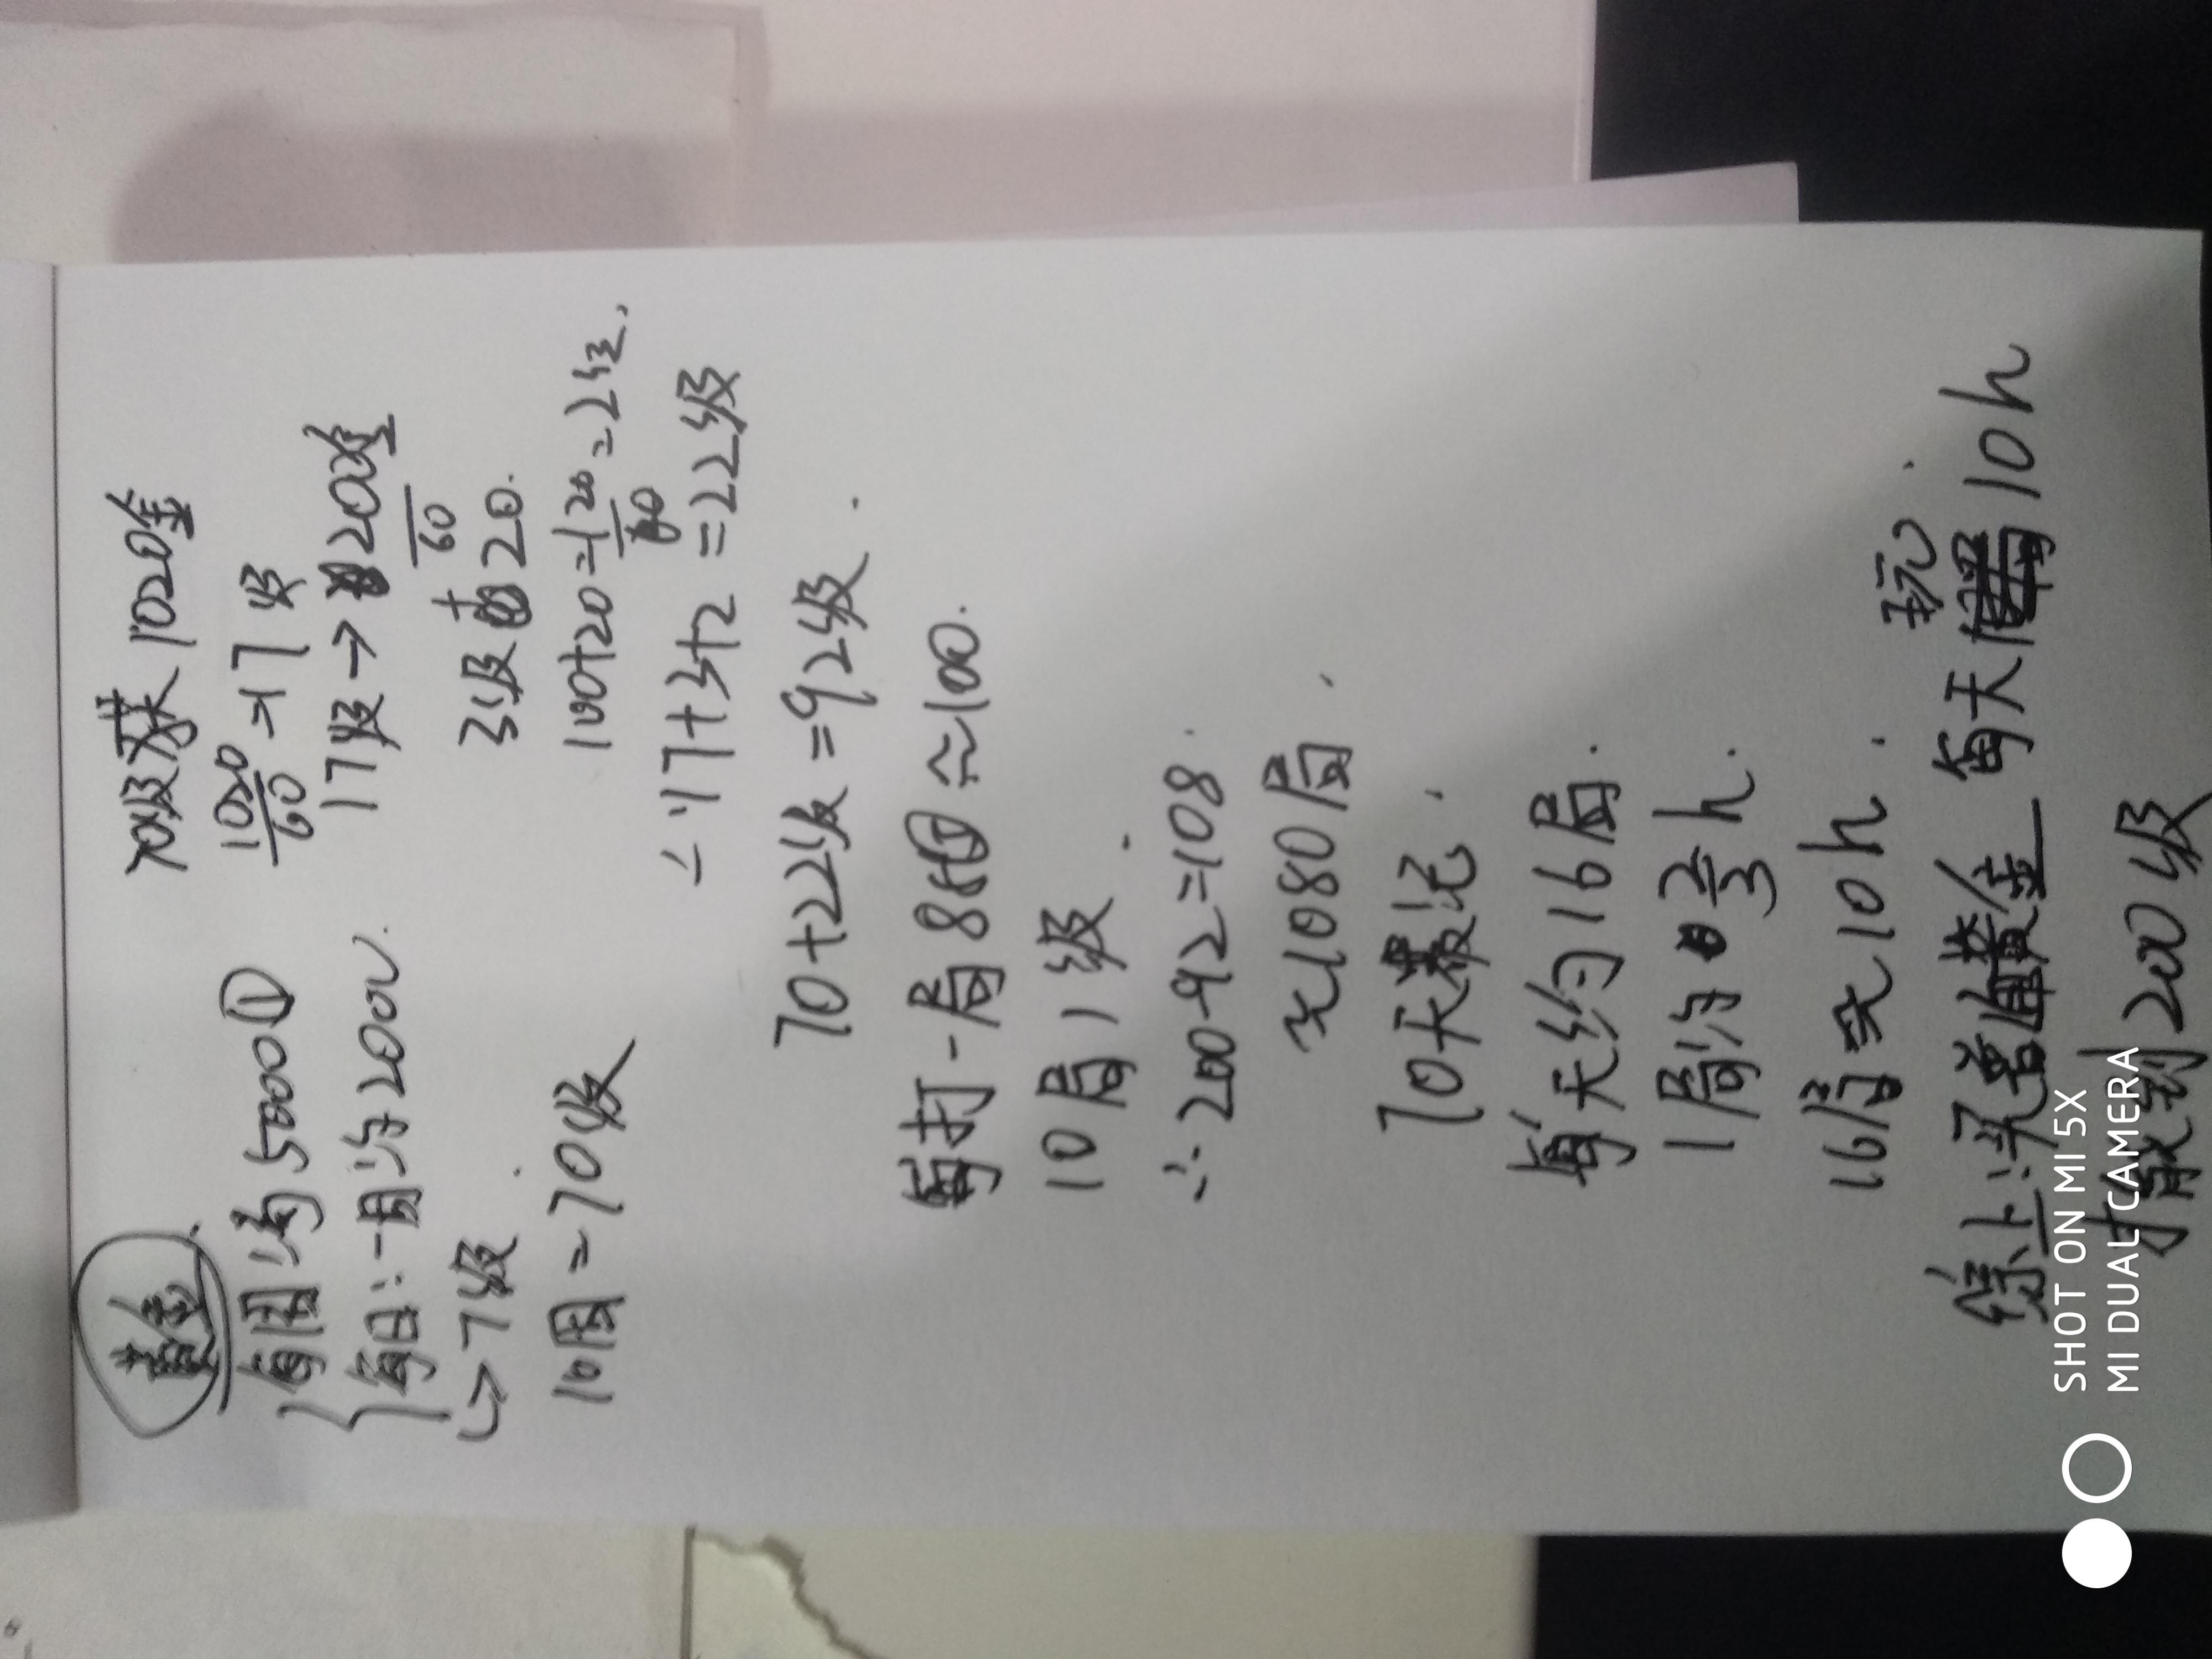 黄金.
每周约5000
每日:一周约2000.
↳7级.
10周=70级
70级获1020金
1020/60=17级
17级→200金/60
3级+20.
100+20=120/60=2级.
∴17+3+2=22级
70+22级=92级.
每打一局 ≈100.
10局1级.
∴200-92=108.
大1080局.
70天来记.
每天约16局.
1局约2/3h.
16局大10h.
综上:买黄金 每天玩10h.
才能到200级
SHOT ON MI 5X
MI DUAL CAMERA